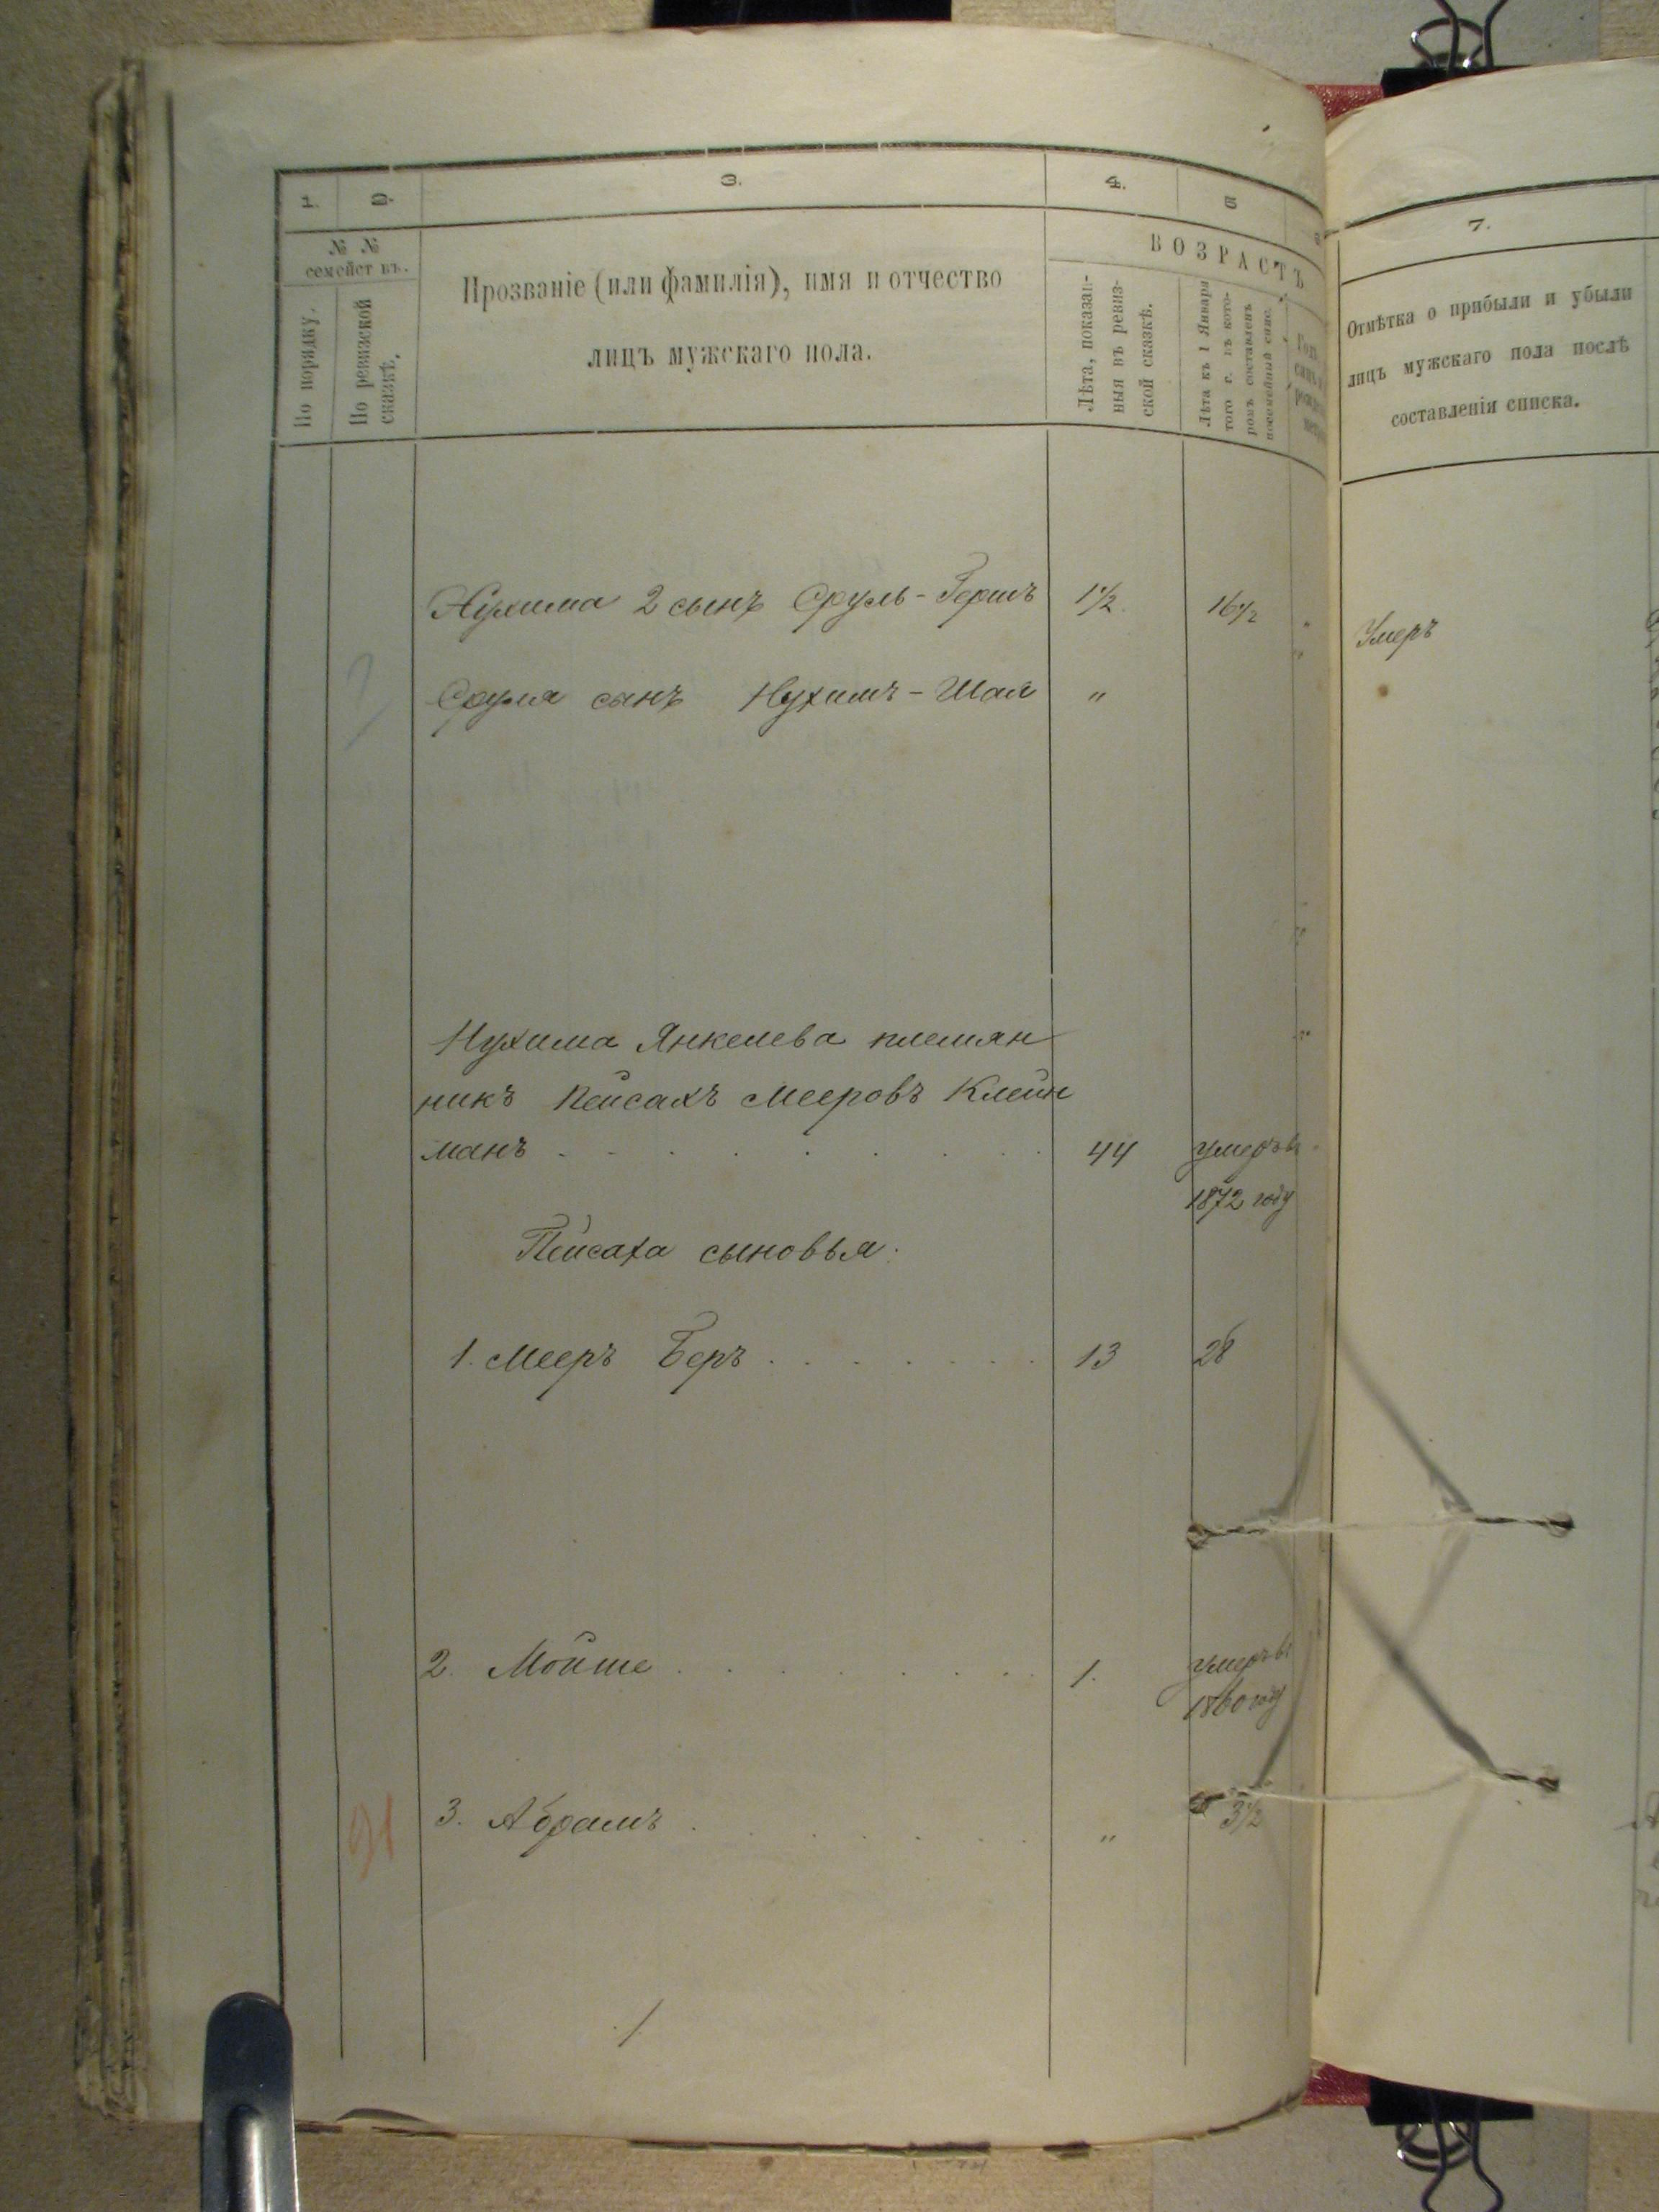 1. 2. 3. 4. 5 6
№ № семействъ.
По порядку.
По ревизской сказкѣ.
Прозваніе (или фамилія), имя и отчество
лицъ мужскаго пола.
ВОЗРАСТЪ
Лѣта, показан-
ныя въ ревиз-
ской сказкѣ.
Лѣта къ 1 Января
того г. въ кото-
ромъ составленъ
посемейный спис.
7.
Отмѣтка о прибыли и убыли
лицъ мужскаго пола послѣ
составленія списка.
Нухима 2 сынъ Сруль-Гершъ 1 1/2. 16 1/2 "
Умеръ
Сруля сынъ Нухимъ-Шая "
Нухима Янкелева племян
никъ Пейсахъ Мееровъ Клейн
манъ 44 умеръ въ
1872 году
Пейсаха сыновья.
1. Мееръ Беръ 13 28
2. Мойше 1. умеръ въ
1860 году
91 3. Абрамъ " 3 1/2